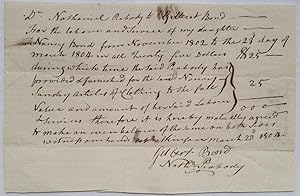 Dr. Nathaniel Peabody to Gilbert Bond
For the labour and service of my daughter
Nancy Bond from November 1802 to the 28 day of
march 1804 in all thirty five Dollars $25
during which time the said Peabody has
provided & furnished for the said Nancy
Sundry articles of Clothing to the full 25
Value and amount of her said Labour
& services therefore it is hereby mutually agreed 00 0
to make an even balance of the same on both sides
witness our hands march 28 1804
Gilbert Bond
Nathl Peabody